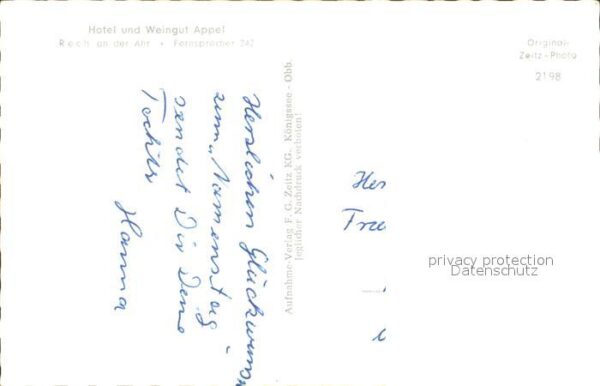 Hotel und Weingut Appel
Rech an der Ahr • Fernsprecher 242
Original-
Zeitz-Photo
2198
Herzlichen Glückwunsch
zum „Namenstag
sendet Dir Deine
Tochter
Hanna
Aufnahme-Verlag F. G. Zeitz KG., Königssee - Obb.
Jeglicher Nachdruck verboten!
privacy protection
Datenschutz